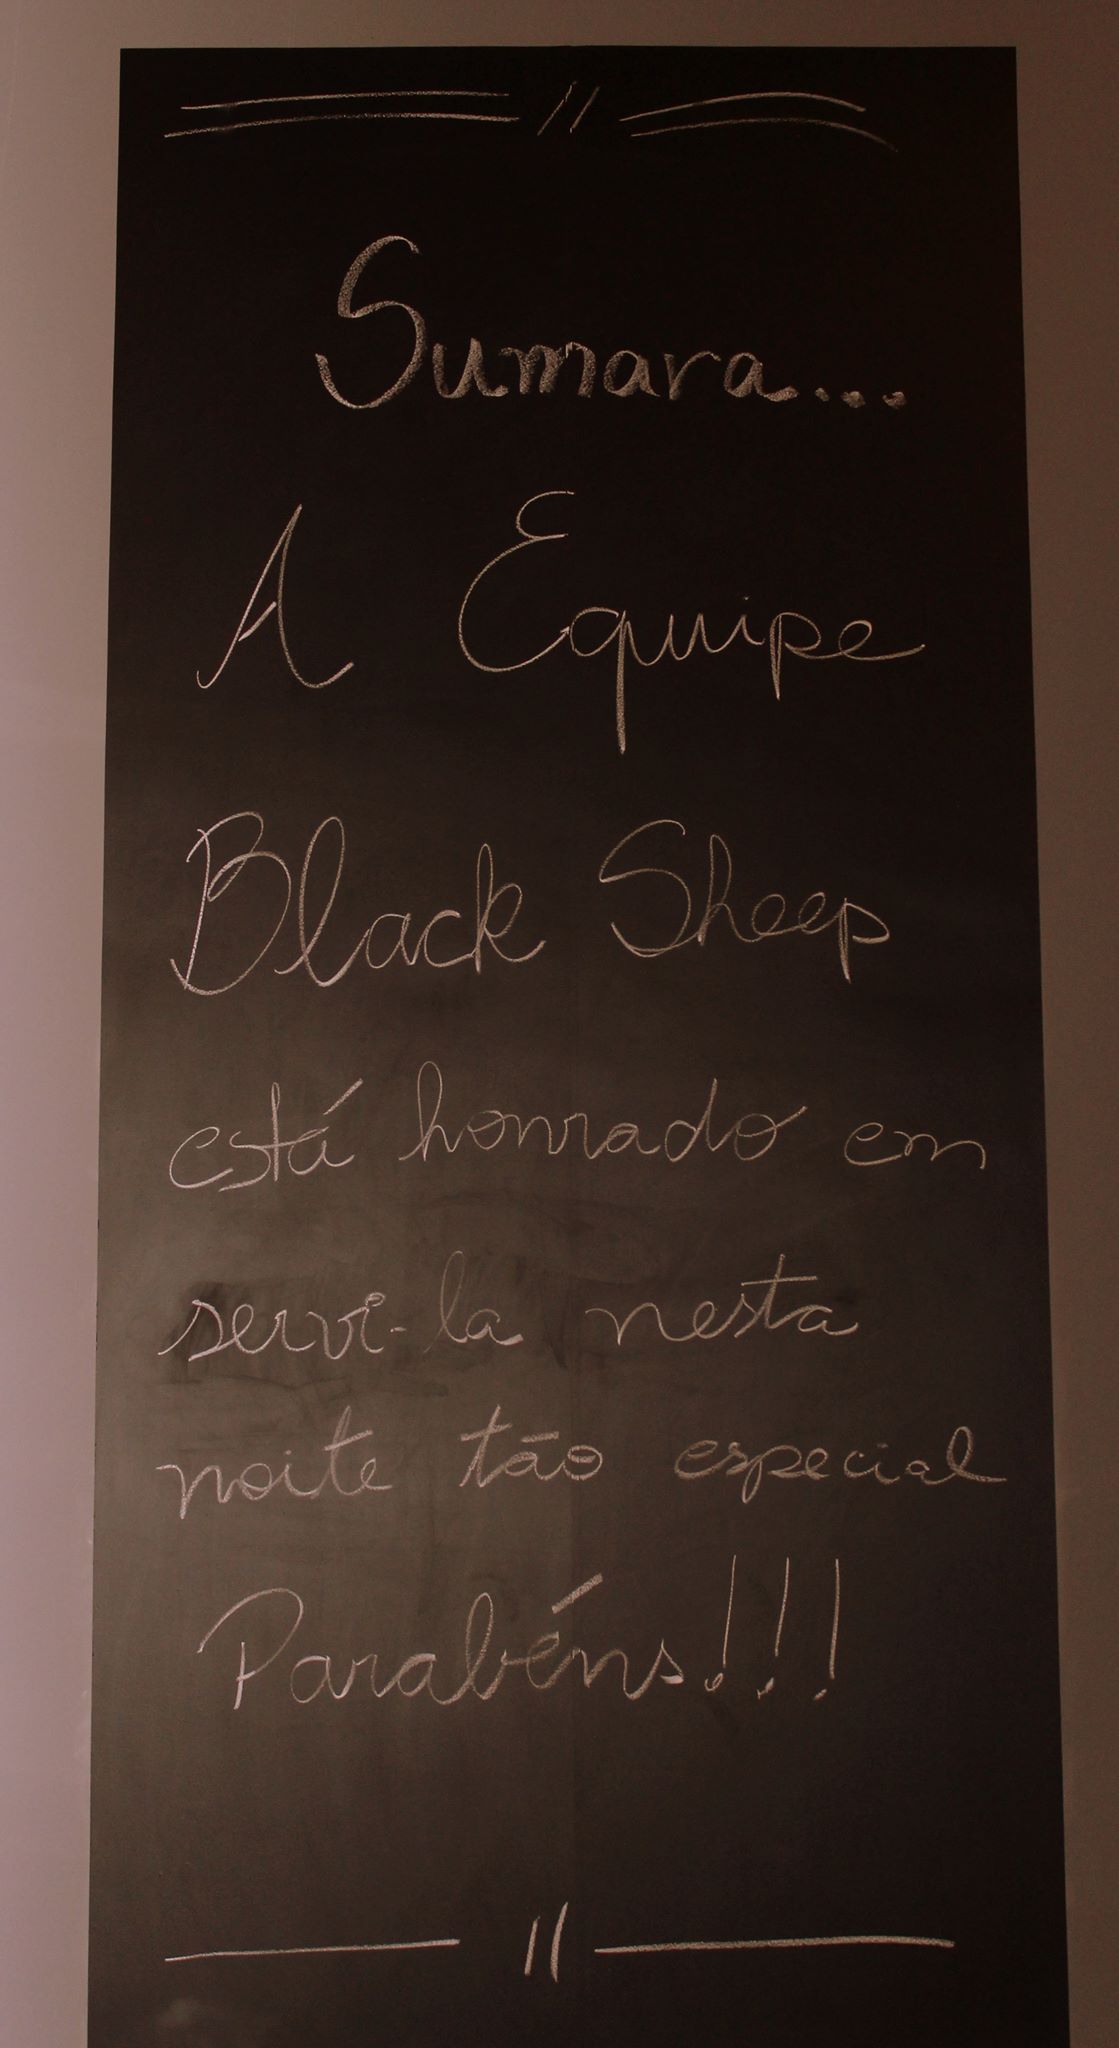 Sumara...
A Equipe
Black Sheep
está honrado em
servi-la nesta
noite tão especial
Parabéns!!!